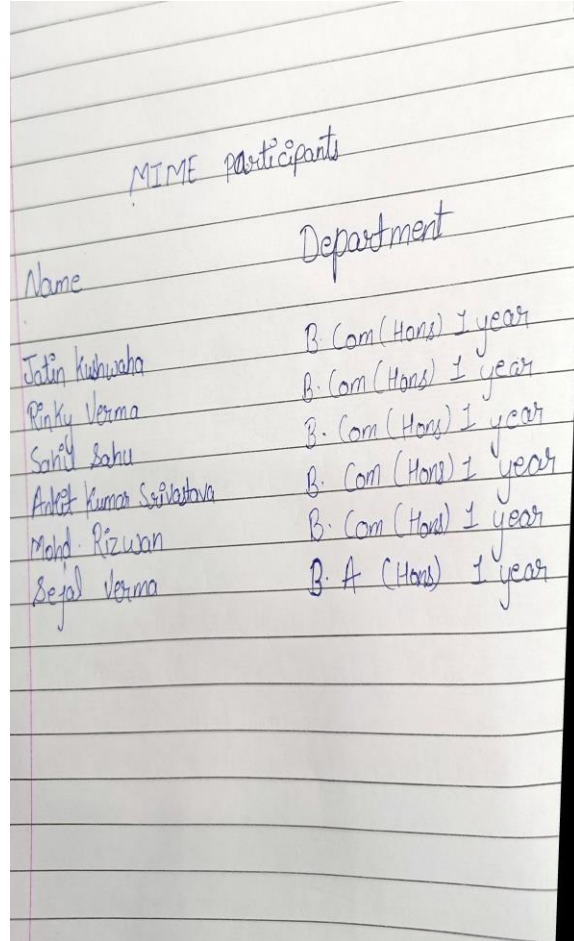 MIME participants
Name Department
Jatin Kushwaha B. Com (Hons) I year
Rinky Verma B. Com (Hons) I year
Sahil Sahu B. Com (Hons) I year
Ankit Kumar Srivastava B. Com (Hons) I year
Mohd. Rizwan B. Com (Hons) I year
Sejal Verma B. A (Hons) I year